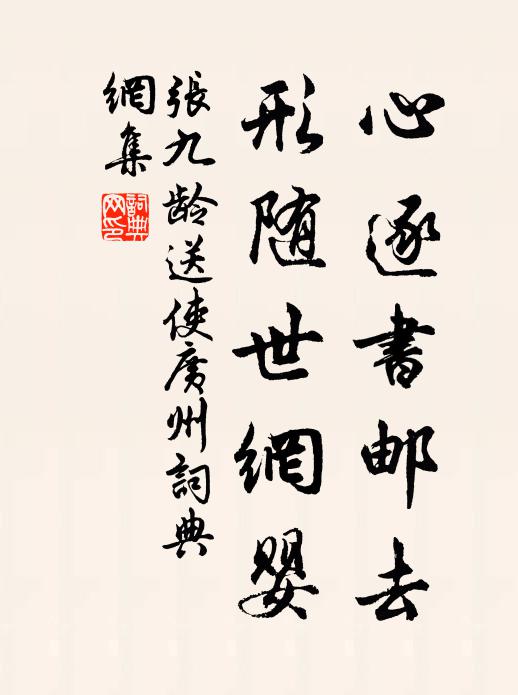 心逐書邮去
形随世網嬰
張九龄送使廣州詞典
網集
詞典网印